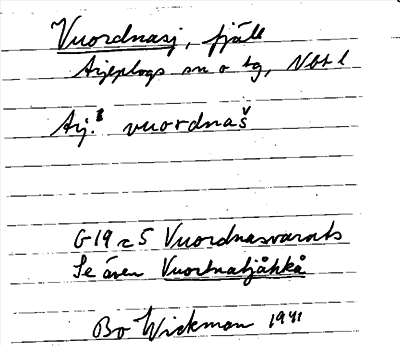 Vuordnasj, fjäll
Arjeplogs sn o tg, Nbt l
Arj. vuordnaš
G 19 c 5 Vuordnasvarats
Se även Vuortnatjåkkå
Bo Wickman 1941